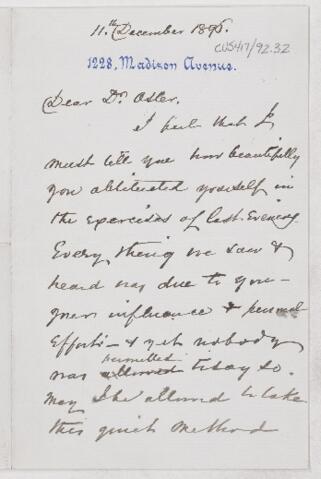 11th December 1896.
CUS417/92.32
1228, Madison Avenue.
Dear Dr. Osler.
I feel that I
must tell you how beautifully
you obliterated yourself in
the exercises of last Evening.
Every thing we saw &
heard was due to you -
your influence & personal
Efforts - & yet nobody
permitted
was allowed to say so.
May I be allowed to take
this quiet method